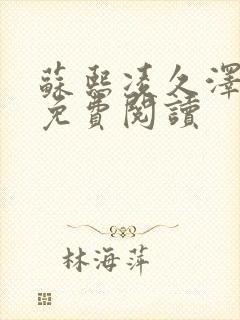 蘇熙凌久澤
免費閱讀
林海萍